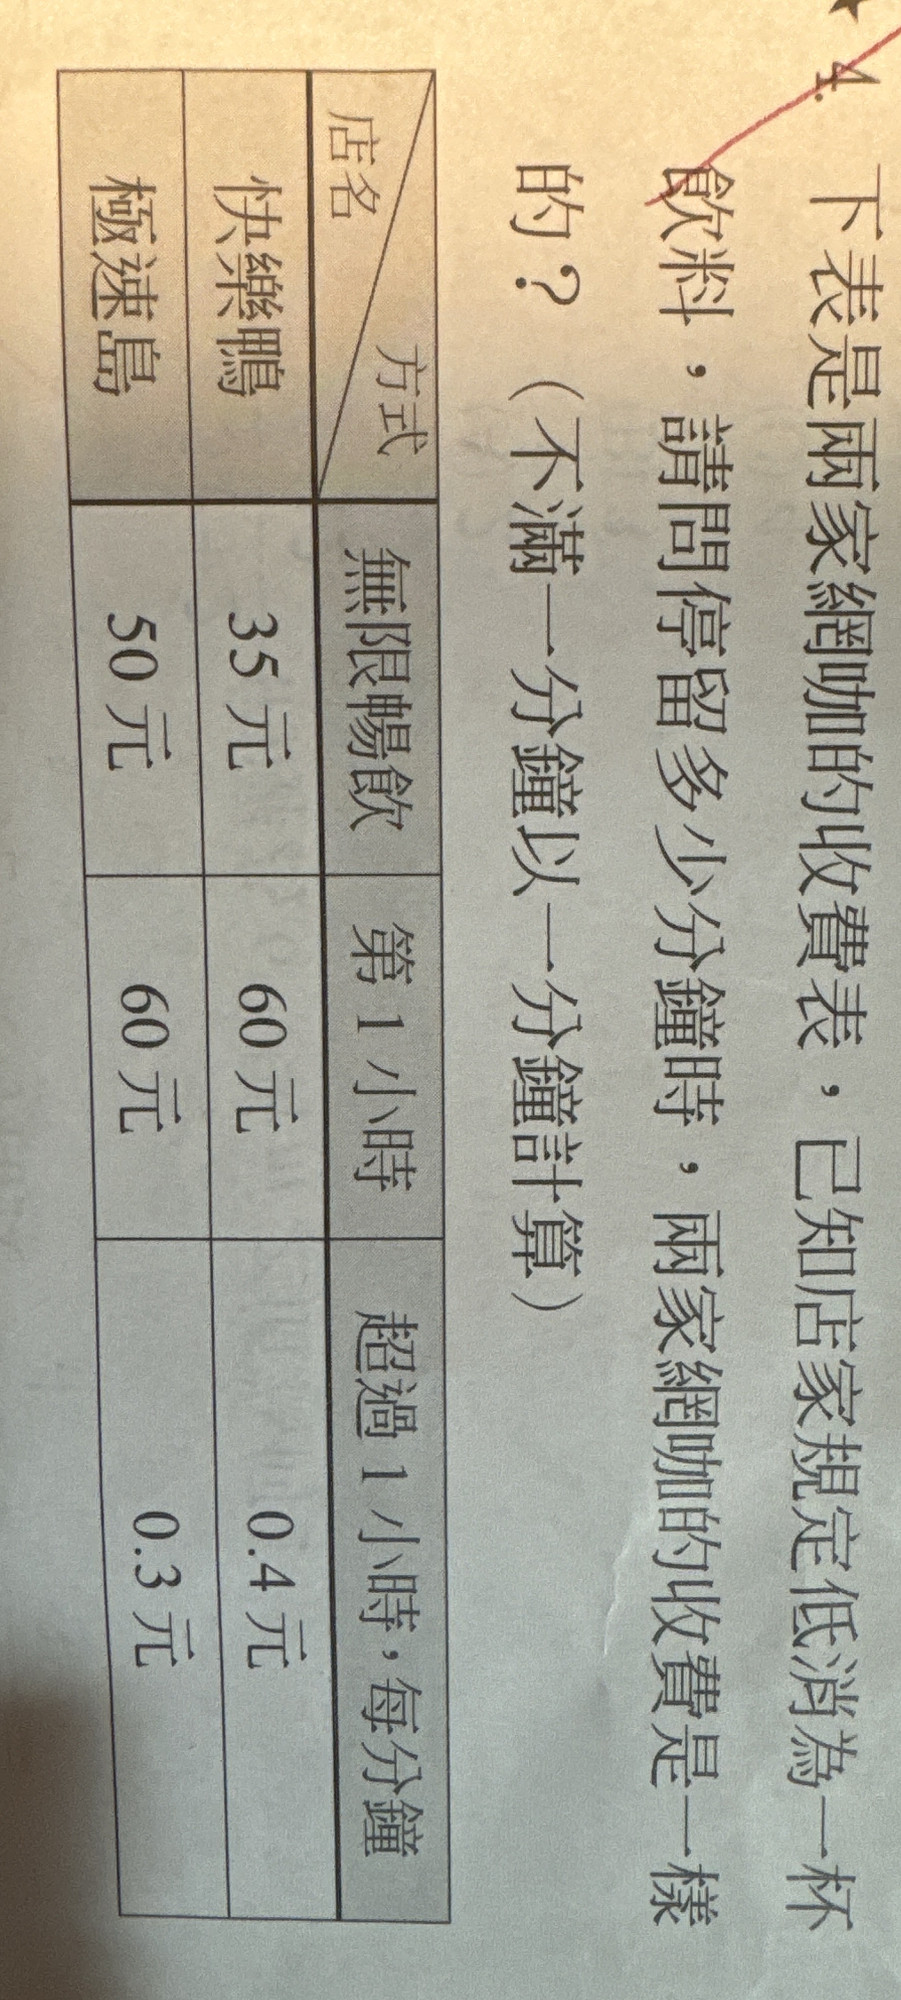 ★ 4. 下表是兩家網咖的收費表，已知店家規定低消為一杯
飲料，請問停留多少分鐘時，兩家網咖的收費是一樣
的？（不滿一分鐘以一分鐘計算）
店名 方式 無限暢飲 第 1 小時 超過 1 小時，每分鐘
快樂鴨 35 元 60 元 0.4 元
極速島 50 元 60 元 0.3 元